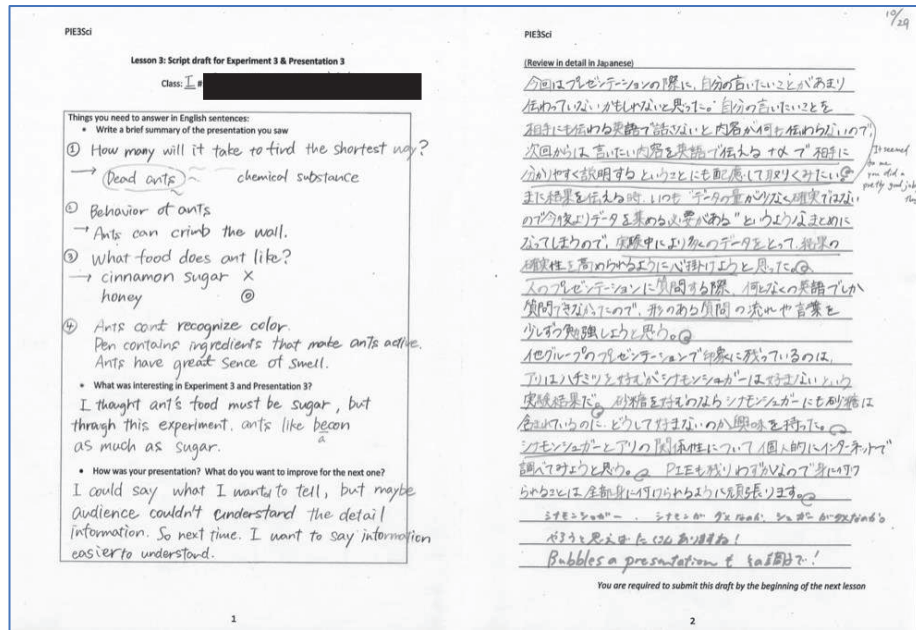 PIE3Sci
Lesson 3: Script draft for Experiment 3 & Presentation 3
Class: I #
Things you need to answer in English sentences:
• Write a brief summary of the presentation you saw
① How many will it take to find the shortest way?
→ Dead ants chemical substance
② Behavior of ants
→ Ants can crimb the wall.
③ What food does ant like?
→ cinnamon sugar ×
honey ◎
④ Ants can't recognize color.
Pen contains ingredients that make ants active.
Ants have great sence of smell.
• What was interesting in Experiment 3 and Presentation 3?
I thought ant's food must be sugar, but
through this experiment, ants like becon
a
as much as sugar.
• How was your presentation? What do you want to improve for the next one?
I could say what I want to tell, but maybe
audience couldn't understand the detail
information. So next time. I want to say information
easier to understand.
1
10/29
PIE3Sci
(Review in detail in Japanese)
今回はプレゼンテーションの際に、自分の言いたいことがあまり
伝わっていないかもしれないと思った。自分の言いたいことを
相手にも伝わる英語で話さないと内容が何も伝わらないので、
次回からは言いたい内容を英語で伝える+αで相手に
分かりやすく説明するということにも配慮して取りくみたい。
It seemed
to me
you did a
pretty good job
また結果を伝える時、いつも"データの量が少なく確実ではない
ので今後よりデータを集める必要がある"というようなまとめに
なってしまうので、実験中により多くのデータをとって、結果の
確実性を高められるように心掛けようと思った。
人のプレゼンテーションに質問する際、何となくの英語でしか
質問できなかったので、形のある質問の流れや言葉を
少しずつ勉強しようと思う。
他グループのプレゼンテーションで印象に残っているのは、
アリはハチミツを好むがシナモンシュガーは好まないという
実験結果だ。砂糖を好むのならシナモンシュガーにも砂糖は
含まれているのに、どうして好まないのか興味を持った。
シナモンシュガーとアリの関係性について個人的にインターネットで
調べてみようと思う。PIEも残りわずかなので身に付け
られることは全部身に付けられるように頑張ります。
シナモンシュガー、シナモンがダメなのか、シュガーがダメなのか。
やろうと思えばたくさんありますね!
Bubbles a presentation も
You are required to submit this draft by the beginning of the next lesson
2